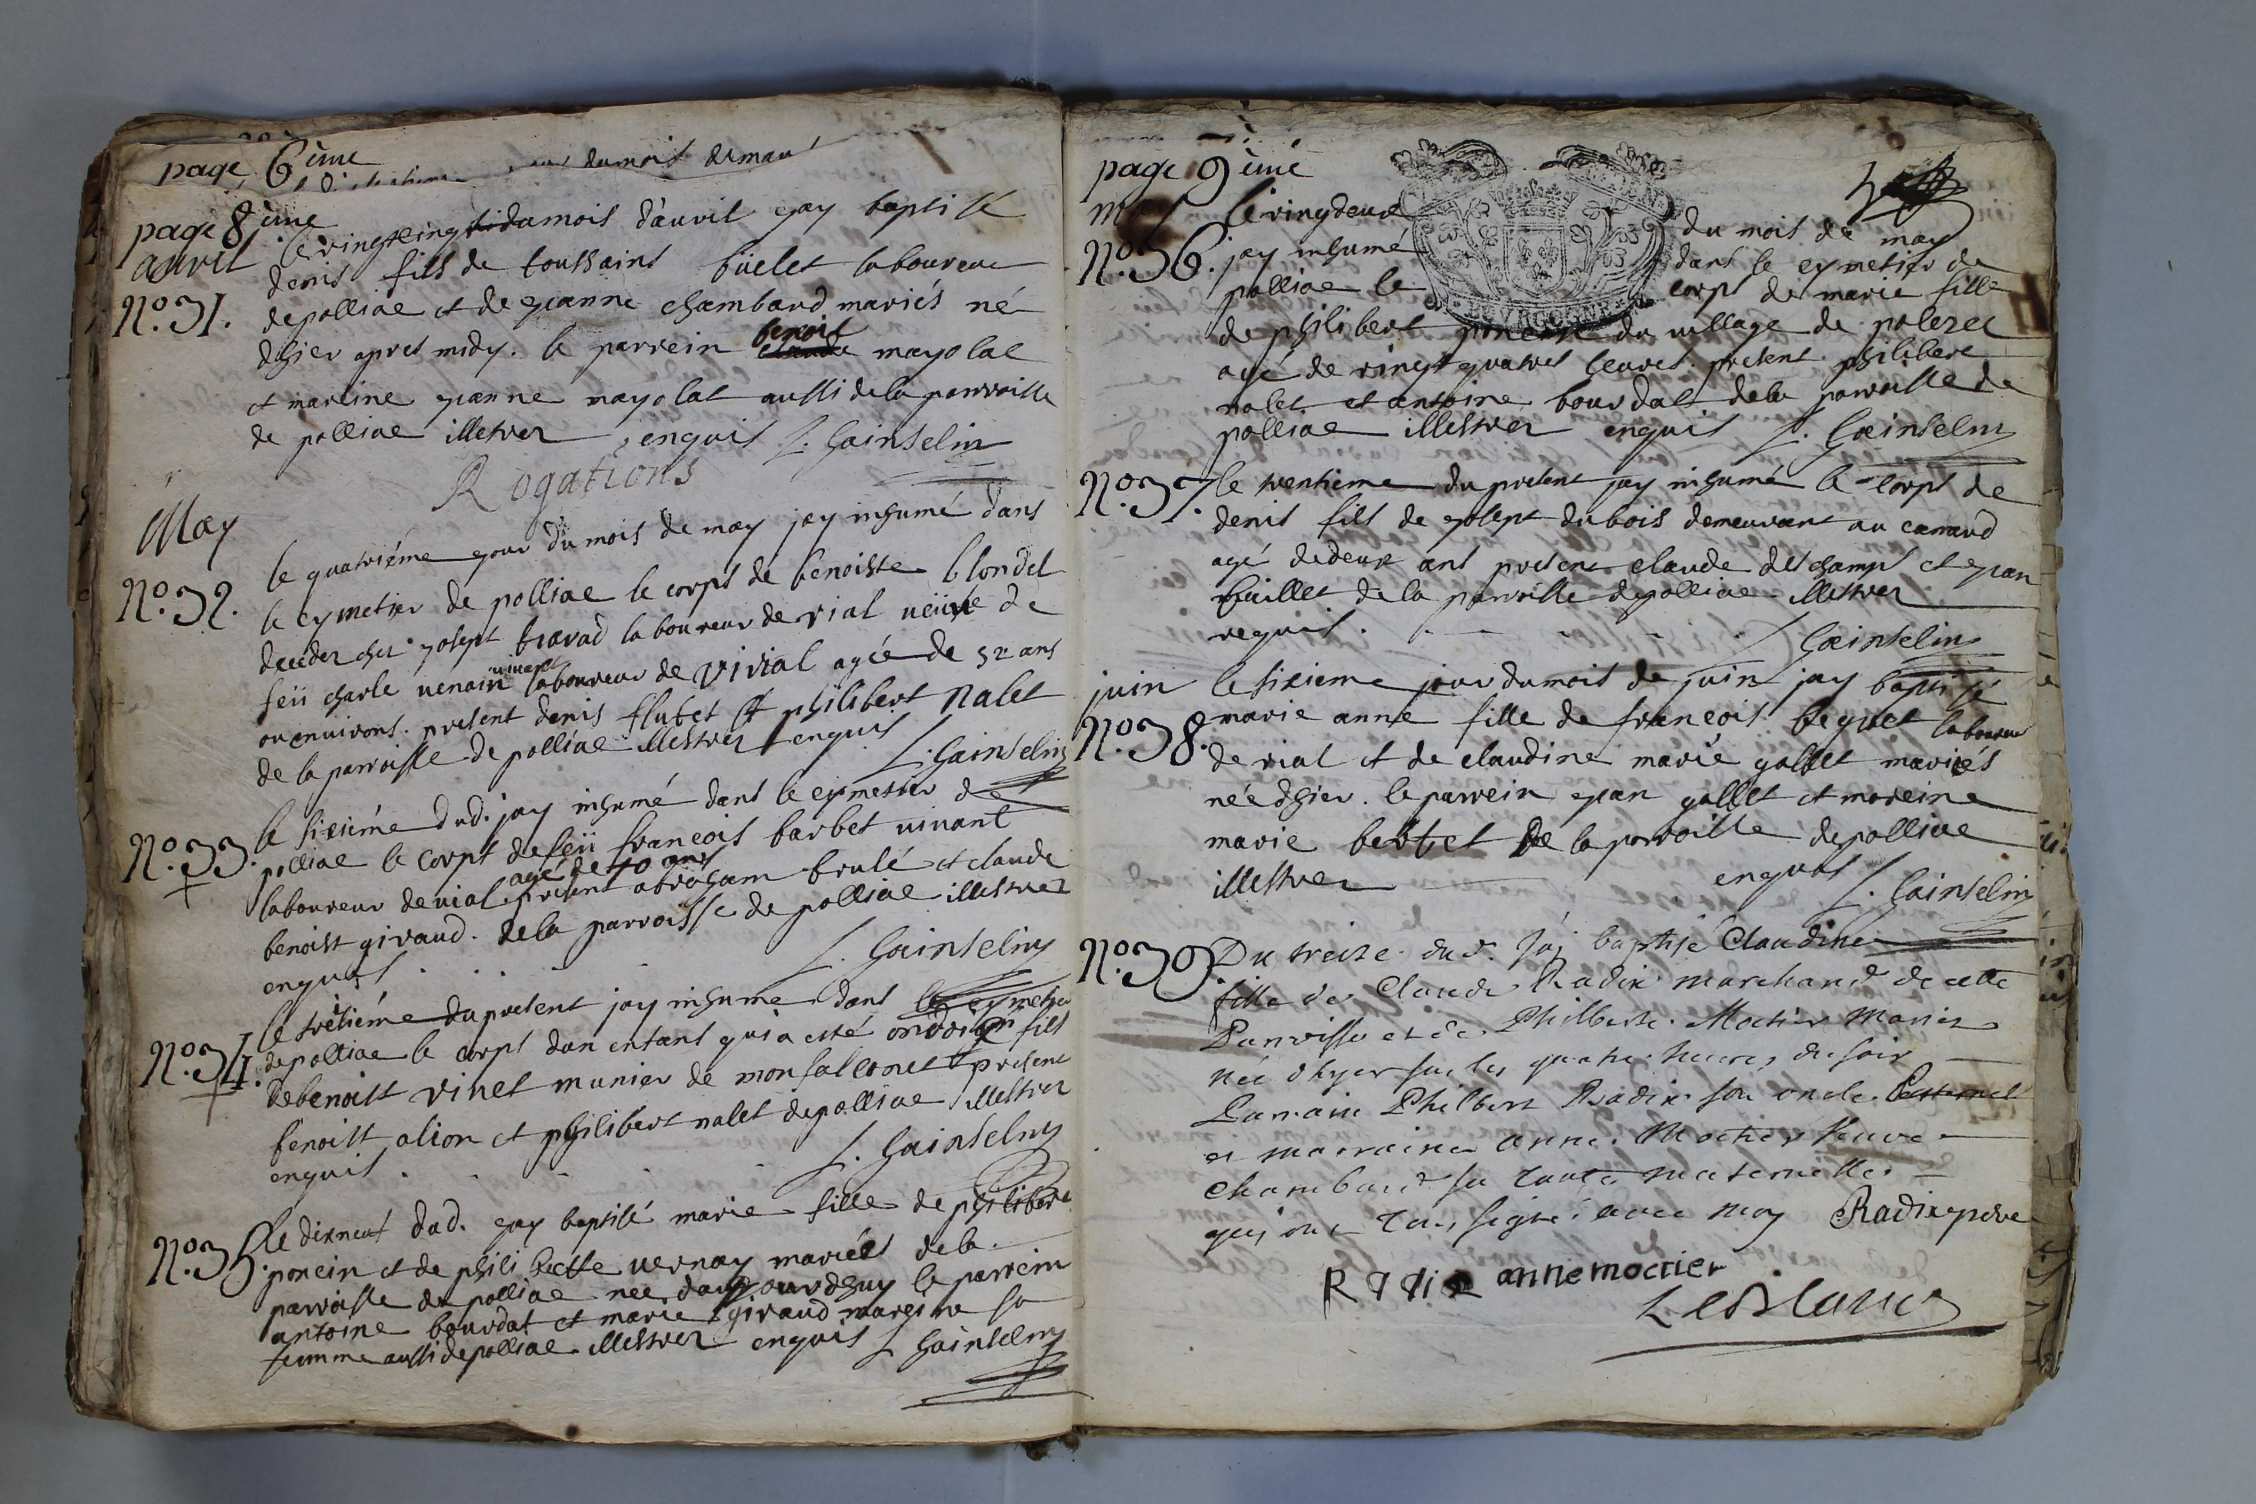 page 6ème
du mois de
page 8ème
avril le vingtcinq du mois d'auvil jay baptisé
N°.31. denis fils de toussaint büelet laboureur
de polliac et de jeanne chambard mariés né
dhier apres midy. le parrein benoit mayolac
et mareine jeanne mayolat aussi de la parroisse
de polliac illestrer enquis L. Gainselin
Rogations
May
le quatriéme jour du mois de may jay inhumé dans
N°.32. le cymetier de polliac le corps de benoiste blondel
decedez chez joseph bravad laboureur de vial veüve de
feü charle venain vivant laboureur de vivial agée de 52 ans
ou environs. present denis flutet et philibert nalet
de la parroisse de polliac illestrer enquis
L. Gainselin
le sixiéme dud. jay inhumé dans le cymetier de
N°.33. polliac le corps de feü francois barbet vivant
laboureur de vial agé de 40 ans present abraham brulé et claude
benoist giraud. de la parroisse de polliac illestrer
enquis L. Gainselin
le treisiéme du present jay inhumé dans le cymetier
N°.34. de polliac le corps dun enfant qui a esté ondoié fils
de benoist vinet munier de monfalconet present
benoist alion et philibert nalet de polliac illestrer
enquis L. Gainselin
N°.35. le dixneuf dud. jay baptisé marie fille de philibert
poncin et de philiberte vernay mariés de la
parroisse de polliac née daujourdhuy le parrein
antoine bourdat et marie giraud mareine sa
femme aussi de polliac illestrer enquis L. Gainselin
page 9ème
may le vingdeux du mois de may
N°.36. jay inhumé dans le cymetier de
polliac le corps de marie fille
de philibert poncin du village de polezet
agé de vingt quatres heures. present philibert
nalet et antoine bourdat de la parroisse de
polliac illestrer enquis L. Gainselin
N°.37. le trentieme du present jay inhumé le corps de
denis fils de joseph du bois demeurant au canard
agé de deux ans present claude deschamps et jean
buillet de la parroisse de polliac illestrer
requis. L. Gainselin
juin le sixieme jour du mois de juin jay baptisé
N°.38. marie anne fille de francois beguet laboureur
de vial et de claudine marie gallet mariés
née dhier. le parrein jean gallet et mareine
marie bertet de la parroisse de polliac
illestrer enquis L. Gainselin
N°.39. Du treize du d. Jáj baptisé Claudine
fille de Claude Radix marchand de cette
Parroisse et de Philberte Moctier Mariés
née dhyer sur les quatre heures du soir
Parrain Philbert Radix son oncle Paternel
et marraine Anne Moctier Veuve
Chambard sa tante maternelle
qui ont tous signé avec moy Radix pere
RADIX anne moctier
LeBlanc